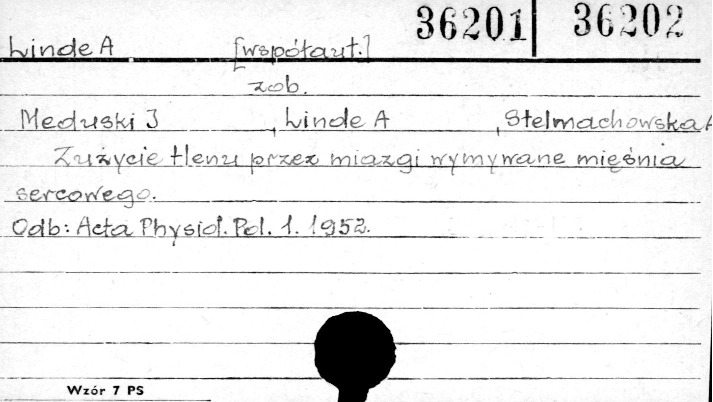 Linde A [współaut.] 36201 36202
zob.
Meduski J , Linde A , Stelmachowska A
Zużycie tlenu przez miazgi wymywane mięśnia
sercowego.
Odb: Acta Physiol. Pol. 1. 1952.
Wzór 7 PS